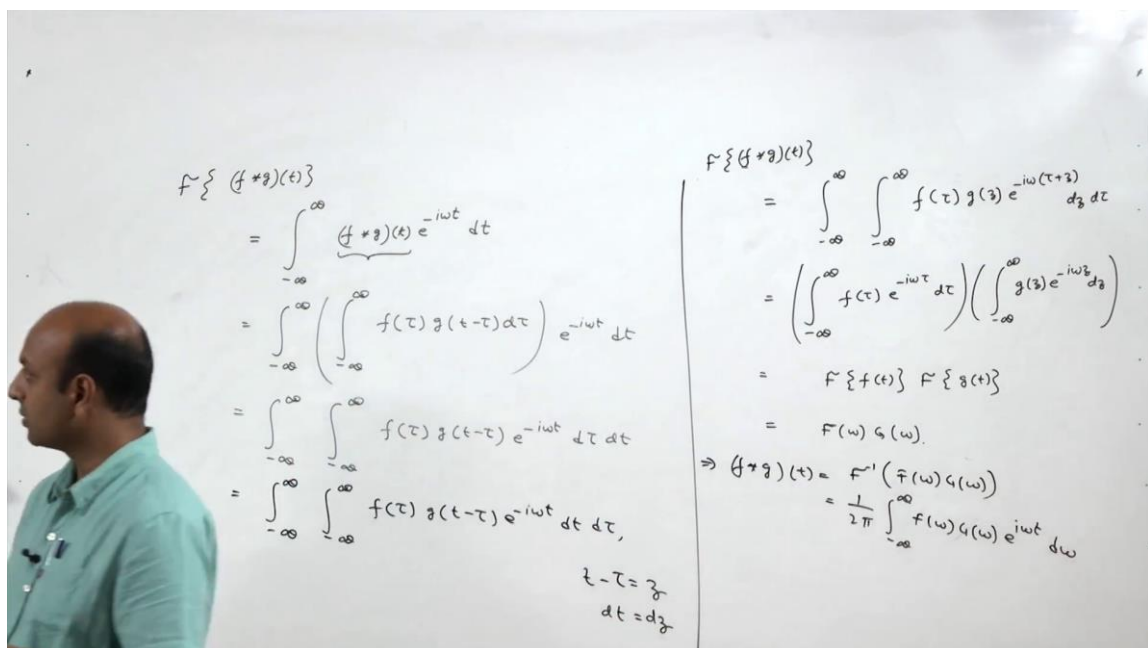 F{ (f*g)(t)}
= ∫_{-∞}^{∞} (f*g)(t) e^{-iωt} dt
= ∫_{-∞}^{∞} ( ∫_{-∞}^{∞} f(τ) g(t-τ) dτ ) e^{-iωt} dt
= ∫_{-∞}^{∞} ∫_{-∞}^{∞} f(τ) g(t-τ) e^{-iωt} dτ dt
= ∫_{-∞}^{∞} ∫_{-∞}^{∞} f(τ) g(t-τ) e^{-iωt} dt dτ,
t-τ=z
dt=dz
F{(f*g)(t)}
= ∫_{-∞}^{∞} ∫_{-∞}^{∞} f(τ) g(z) e^{-iω(τ+z)} dz dτ
= ( ∫_{-∞}^{∞} f(τ) e^{-iωτ} dτ ) ( ∫_{-∞}^{∞} g(z) e^{-iωz} dz )
= F{f(t)} F{g(t)}
= F(ω) G(ω).
⇒ (f*g)(t) = F^{-1}(F(ω)G(ω))
= 1/2π ∫_{-∞}^{∞} F(ω)G(ω) e^{iωt} dω